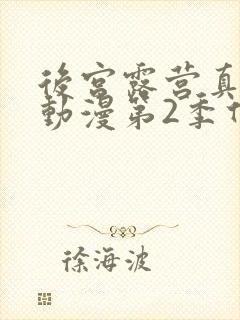 後宮露营真
動漫第2季
徐海波